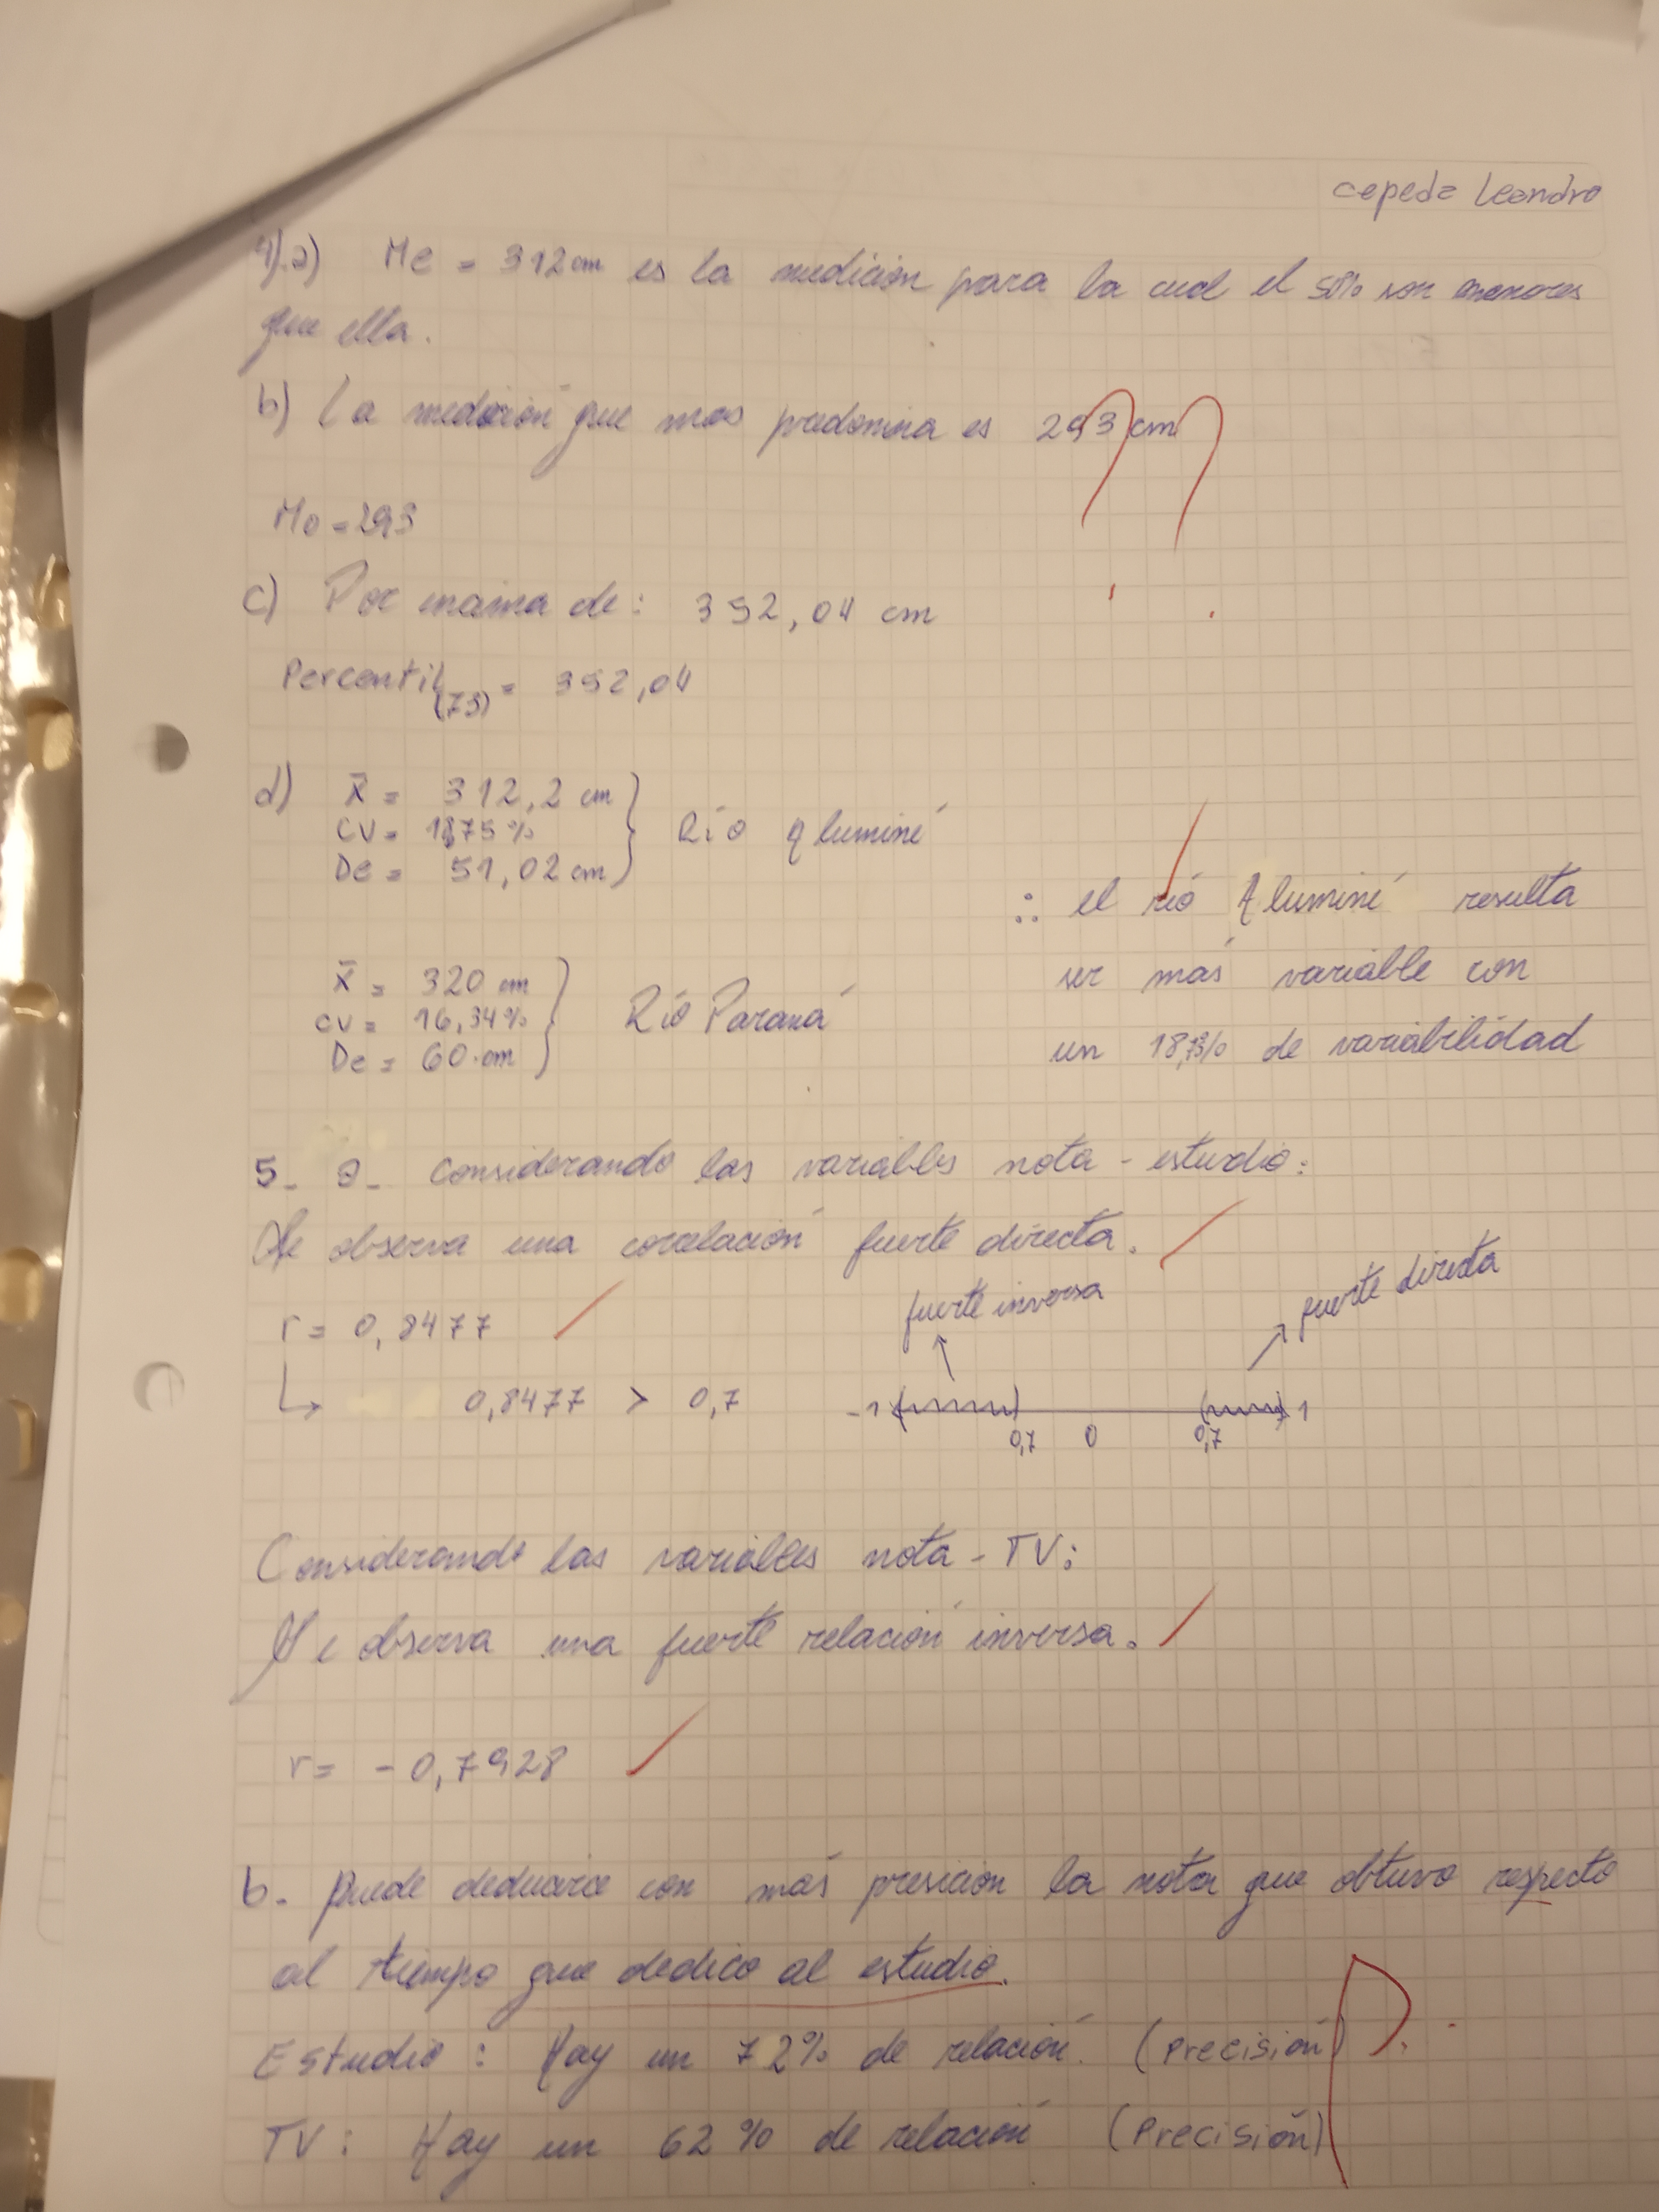 cepeda Leandro
4).a) Me = 312cm es la medición para la cual el 50% son menores
que ella.
b) La medición que mas predomina es 293 cm
??
Mo = 293
c) Por encima de: 352,04 cm
Percentil(75) = 352,04
d) x̄ = 312,2 cm
CV = 18,75%
De = 51,02 cm
Río Aluminé
∴ el rió Aluminé resulta
ser más variable con
un 18,75% de variabilidad
x̄ = 320 cm
cv = 16,34%
De = 60 cm
Río Paraná
5_ a_ considerando las variables nota - estudio:
Se observa una correlación fuerte directa.
fuerte inversa
fuerte directa
r = 0,8477
↳ 0,8477 > 0,7
-1 0,7 0 0,7 1
Considerando las variables nota - TV:
Se observa una fuerte relación inversa.
r = - 0,7928
b. Puede deducirce con más presición la nota que obtuvo respecto
al tiempo que dedico al estudio.
Estudio: Hay un 72% de relación. (Precisión)
TV: Hay un 62% de relación (Precisión)